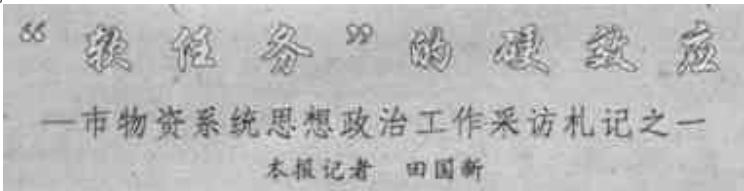 “软任务”的硬效应
—市物资系统思想政治工作采访札记之一
本报记者 田国新